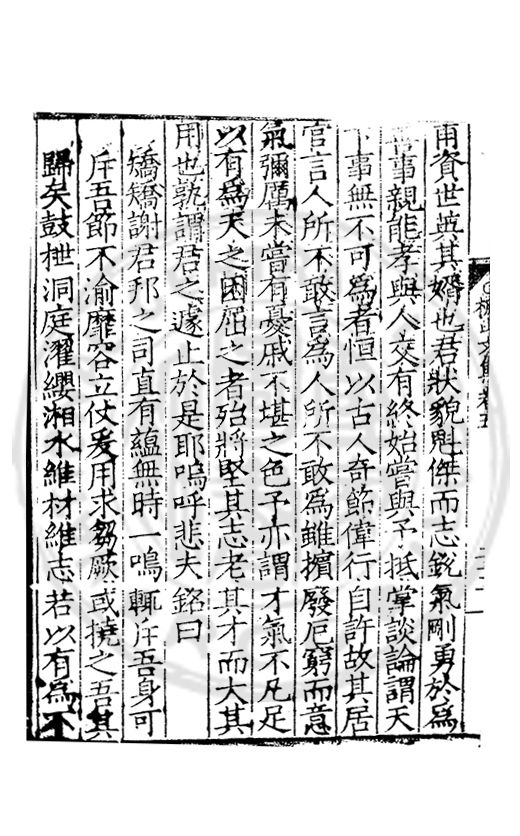 甫資世英其婿也君狀貌魁傑而志銳氣剛勇於為
事親能孝與人交有終始嘗與予抵掌談論謂天
下事無不可為者恒以古人奇節偉行自許故其居
官言人所不敢言為人所不敢為雖擯廢厄窮而意
氣彌厲未嘗有憂戚不堪之色予亦謂才氣不凡足
以有為天之困屈之者殆將堅其志老其才而大其
用也孰謂君之遽止於是耶嗚呼悲夫銘曰
矯矯謝君邦之司直有蘊無時一鳴輒斥吾身可
斥吾節不渝靡容立仗爰用求芻厥或撓之吾其
歸矣鼓枻洞庭濯纓湘水維材維志若以有為不
文集卷五